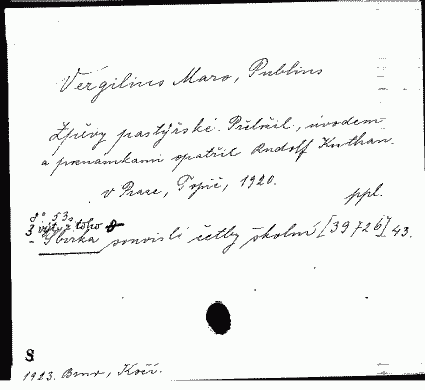 Vergilius Maro, Publius
Zpěvy pastýřské. Přeložil, úvodem
a poznámkami opatřil Rudolf Kuthan.
v Praze, Topič, 1920.
ppl.
8° 53s.
3 výt. z toho
Sbírka souvislé četby školní [39726] 43.
S
1923. Brno, Kočí.